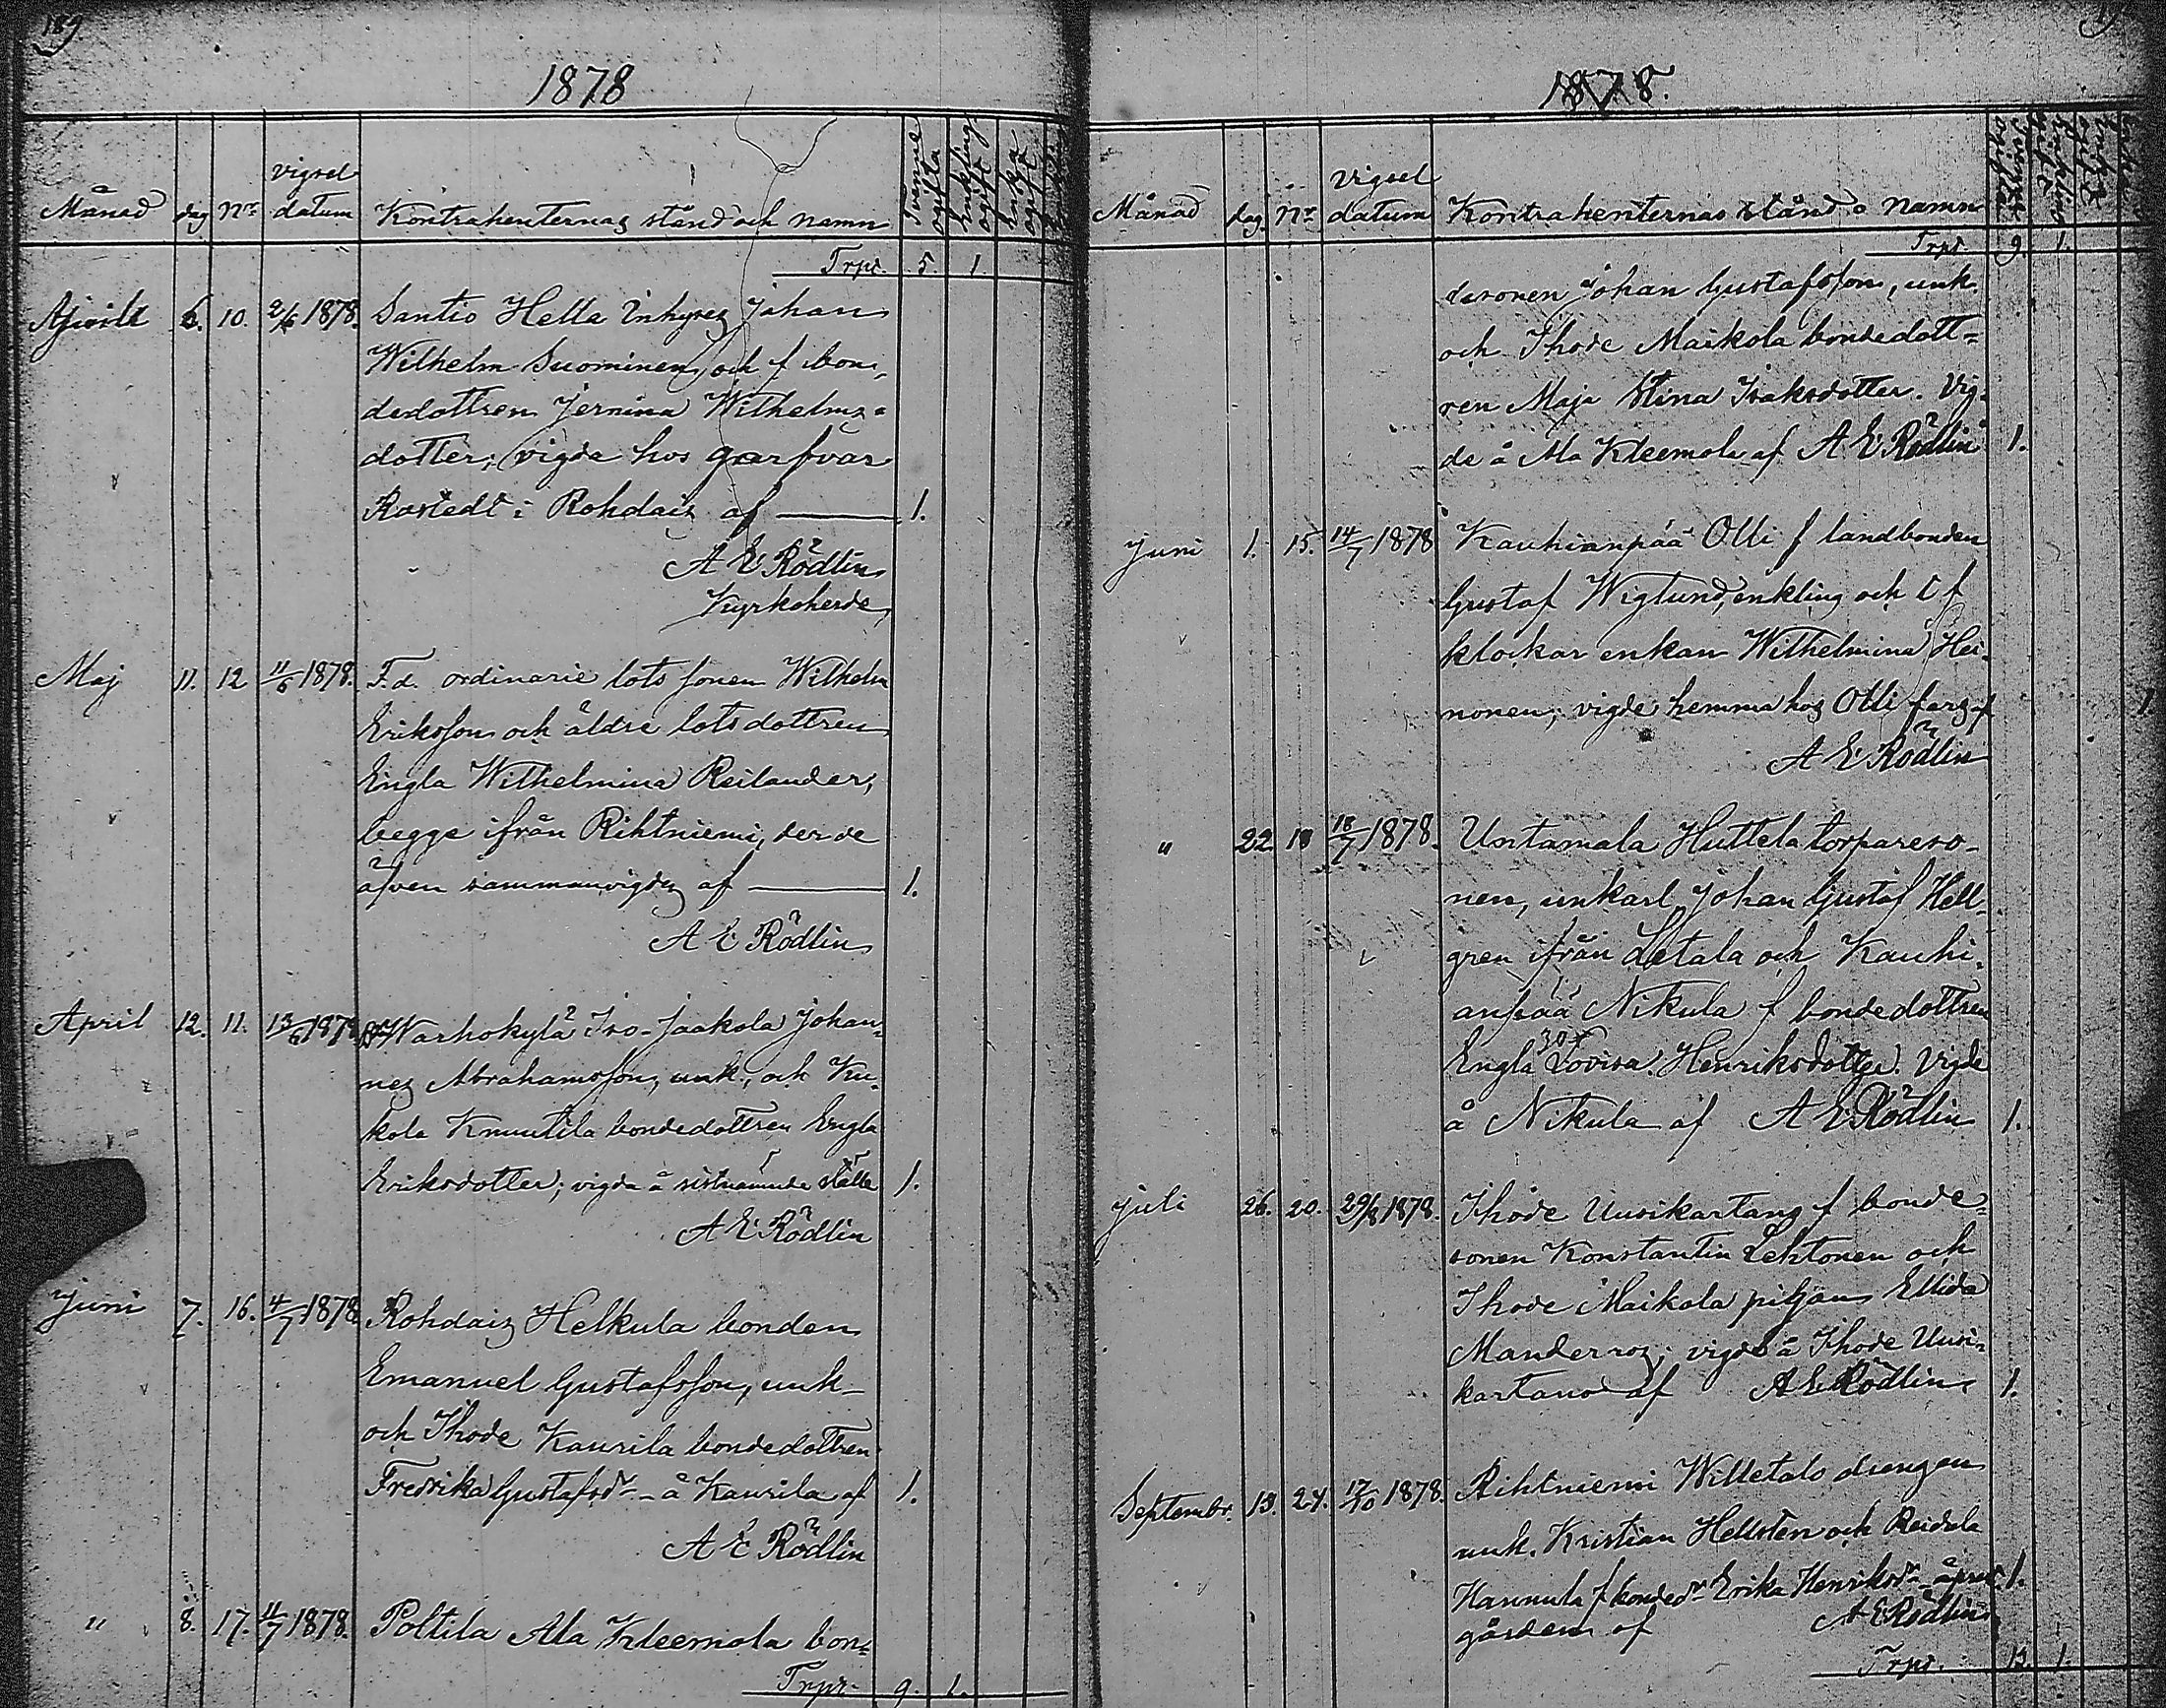 189
1878
Månad dag Nr vigsel datum Kontrahenternas stånd och namn Tvenne ogifta Enkling ogift Enka ogift
Trpr. 5. 1.
Aprill 6. 10. 2/6 1878. Santio Hella Inhyses Johan
Wilhelm Suominen och f bon-
dedottren Jernina Wilhelms-
dotter; vigda hos garfvar
Rostedt i Rohdais af 1.
A E Rödlin
Kyrkoherde
Maj 11. 12 11/6 1878. F.d. ordinarie lots sonen Wilhelm
Eriksson och äldre lotsdottren
Engla Wilhelmina Reilander,
begge ifrån Rihtniemi, der de
äfven sammanvigdes af 1.
A E Rödlin
April 12. 11. 13/6 1878 Warhokylä Iso-Jaakola Johan-
nes Abrahamsson, unk., och Ku-
kola Knuutila bondedottren Engla
Eriksdotter; vigda å sistnämnde ställe 1.
A E Rödlin
Juni 7. 16. 4/7 1878 Rohdais Helkula bonden
Emanuel Gustafsson, unk-
och Ihode Kaurila bondedottren
Fredrika Gustafsdr - å Kaurila af 1.
A E Rödlin
" 8. 17. 11/7 1878. Poltila Ala Kleemola bon-
Trpr. 9. 1.
1878.
Månad dag. Nr vigsel datum Kontrahenternas stånd o namn
Trpr. 9. 1.
desonen Johan Gustafsson, unk.
och Ihode Maikola bondedott-
ren Maja Stina Isaksdotter. Vig-
de å Ala Kleemola af A E Rödlin 1.
Juni 1. 15. 14/7 1878 Kauhianpää Olli f landbonden
Gustaf Wiglund, enkling och t f
klockar enkan Wilhelmina Hei-
nonen; vigde hemma hos Olli fars af 1
A E Rödlin
" 22 18 18/7 1878. Untamala Huttela torpareso-
nen, unkarl Johan Gustaf Hell-
gren ifrån Letala och Kauhi-
anpää Nikula f bondedottren
Engla Lovisa Henriksdotter. Vigde
å Nikula af A E Rödlin 1.
Juli 26. 20. 29/8 1878. Ihode Uusikartano f bonde-
sonen Konstantin Lehtonen och
Ihode Maikola pigan Ellida
Mandersos; vigde å Ihode Uusi-
kartano af A E Rödlin 1.
Septembr. 13. 24. 17/10 1878. Rihtniemi Willetals drengen
unk. Kristian Hellsten och Reidala
Hannula f bondedr Erika Henriksdr - å 1.
gården af A E Rödlin
Trpr. 13. 1.